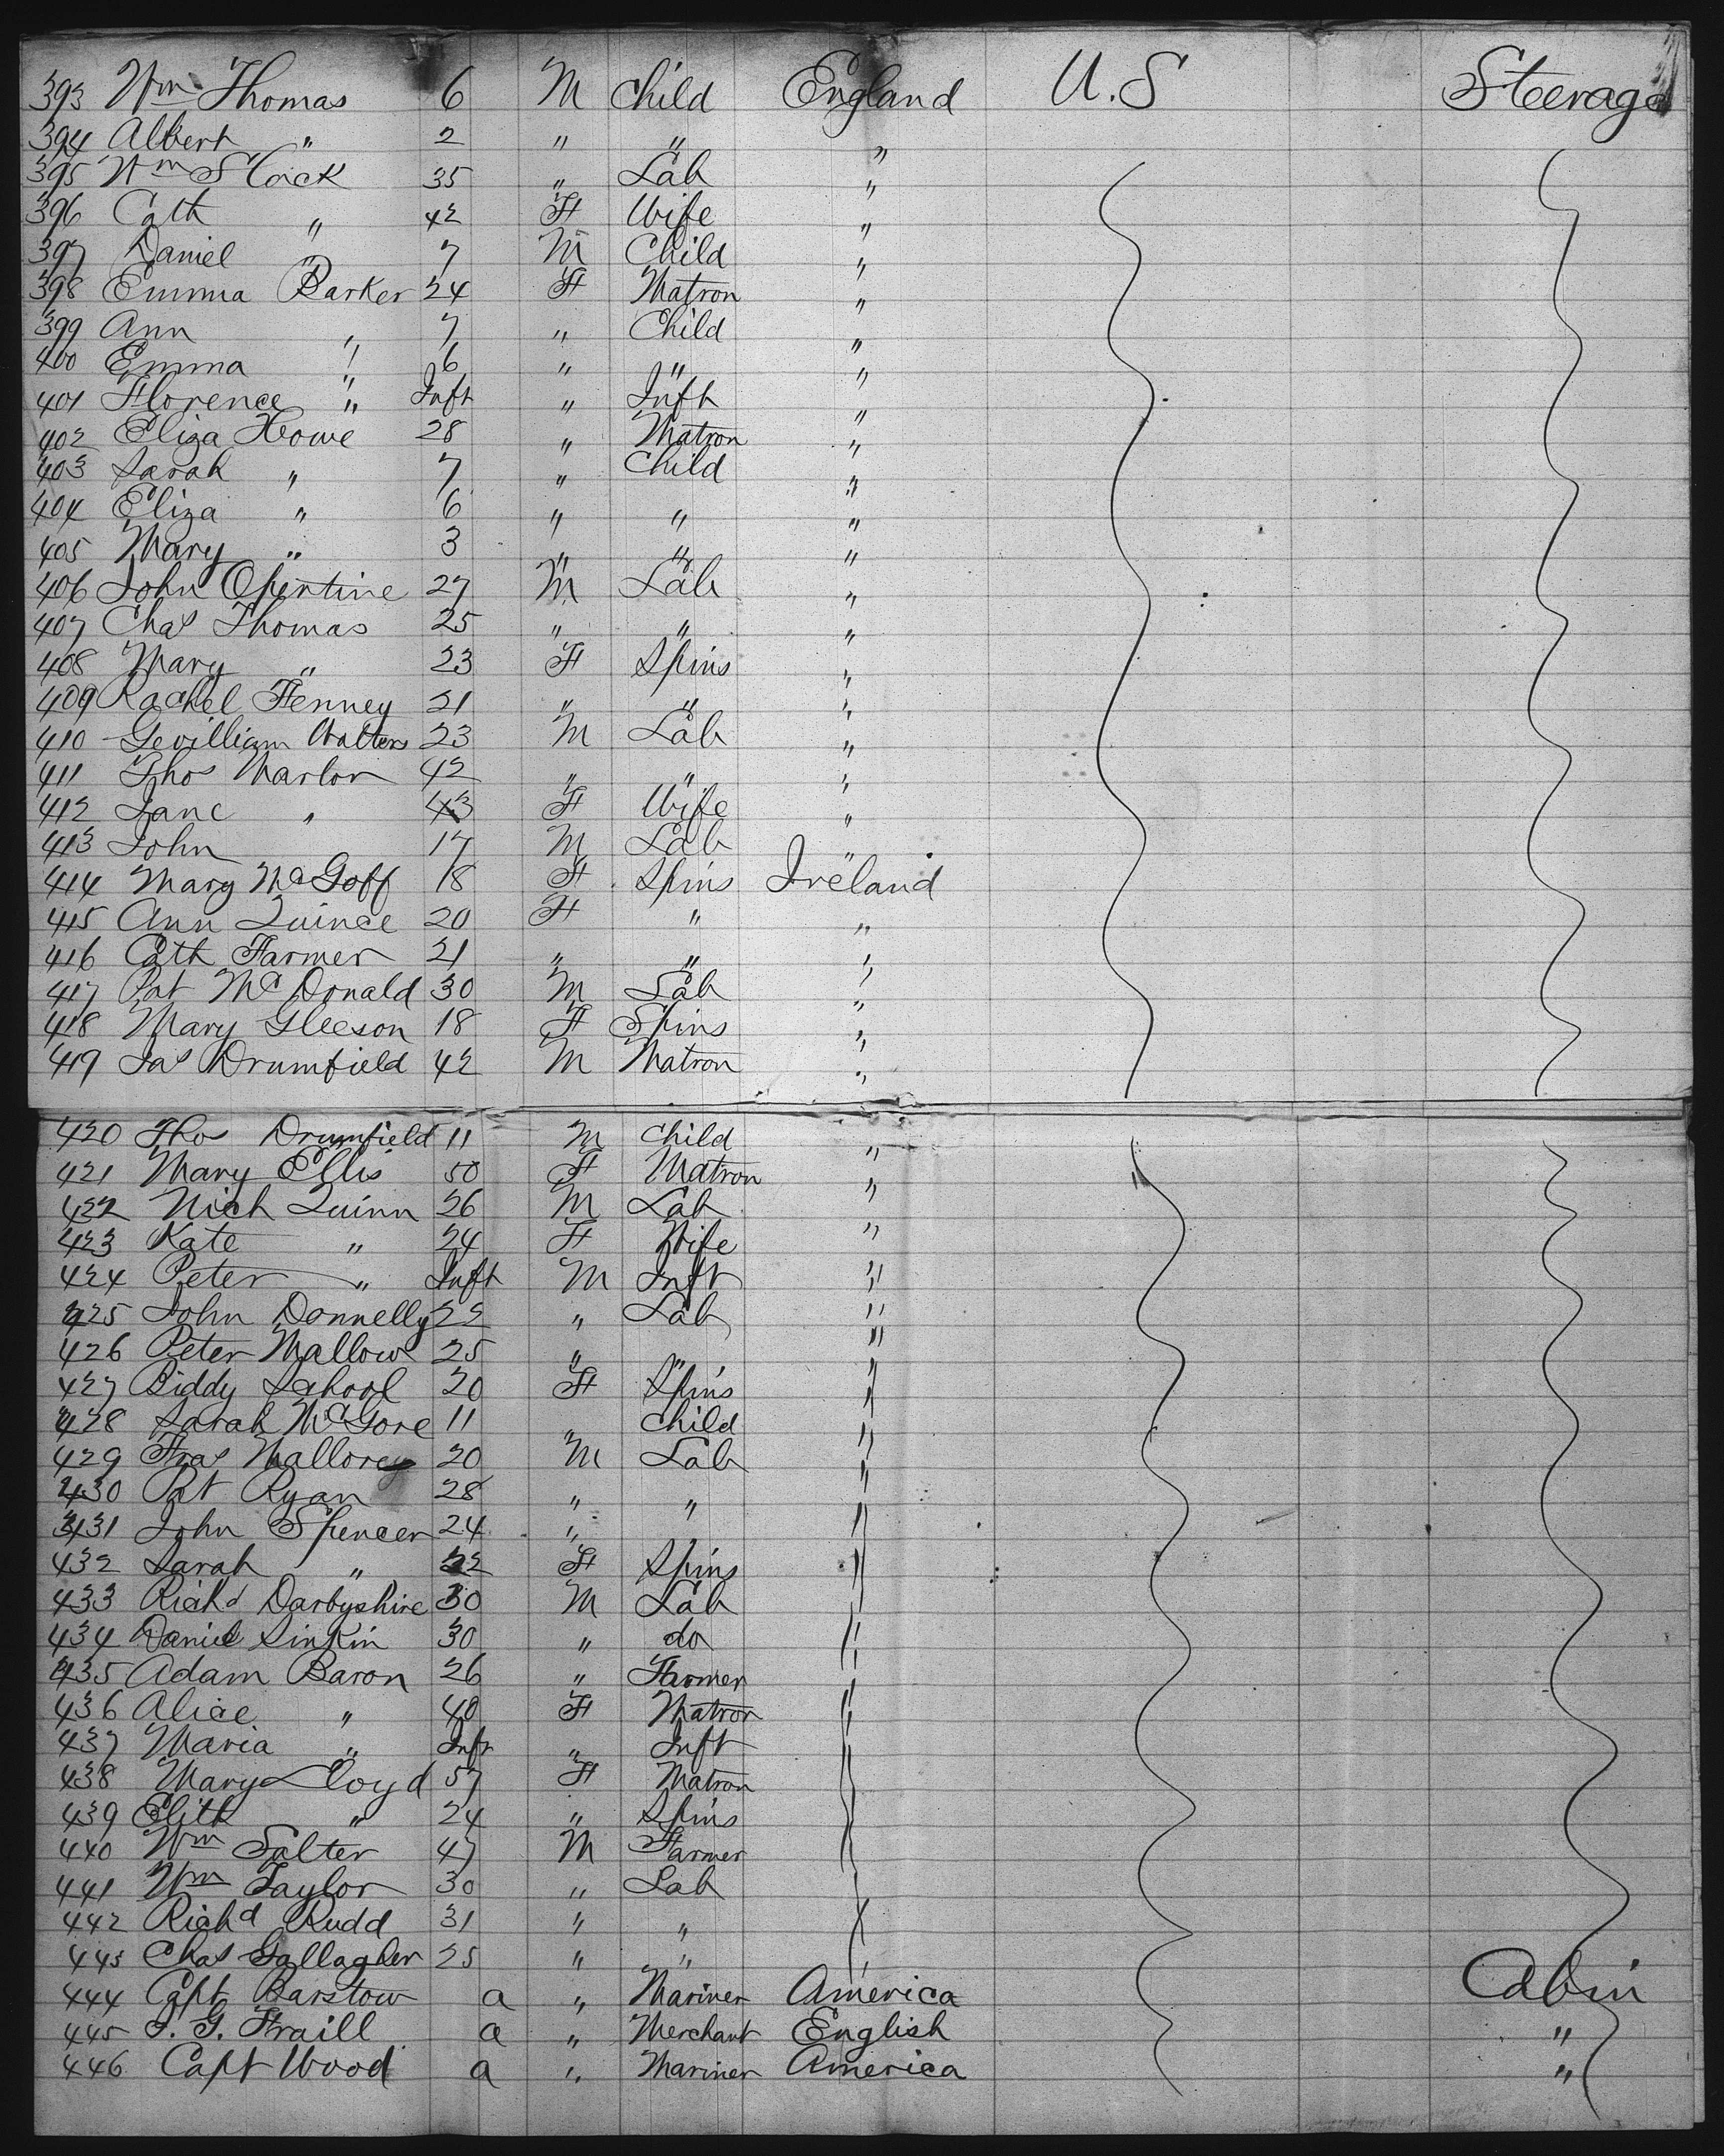 393 Wm Thomas 6 M Child England U.S Steerage
394 Albert " 2 " " "
395 Wm Slack 35 " Lab "
396 Cath " 42 F Wife "
397 Daniel " 7 M Child "
398 Emma Barker 24 F Matron "
399 Ann " 7 " Child "
400 Emma " 6 " " "
401 Florence " Inft " Inft "
402 Eliza Howe 28 " Matron "
403 Sarah " 7 " Child "
404 Eliza " 6 " " "
405 Mary " 3 " " "
406 John 27 M Lab "
407 Chas Thomas 25 " " "
408 Mary " 23 F Spins "
409 Rachel Fenney 21 " " "
410 Walters 23 M Lab "
411 Thos Marlor 42 " " "
412 Jane " 43 F Wife "
413 John 17 M Lab "
414 Mary McGoff 18 F Spins Ireland
415 Ann Quince 20 F " "
416 Cath Farmer 21 " " "
417 Pat McDonald 30 M Lab "
418 Mary Gleeson 18 F Spins "
419 Jas Drumfield 42 M Matron "
420 Thos Drumfield 11 M Child "
421 Mary Ellis 50 F Matron "
422 Nich Quinn 26 M Lab "
423 Kate " 24 F Wife "
424 Peter " Inft M Inft "
425 John Donnelly 22 " Lab "
426 Peter Mallow 25 " " "
427 Biddy 20 F Spins "
428 Sarah McGore 11 " Child "
429 Fras Mallorey 20 M Lab "
430 Pat Ryan 28 " " "
431 John Spencer 24 " "
432 Sarah " 22 F Spins "
433 Richd Darbyshire 30 M Lab "
434 Daniel Sinkin 30 " do "
435 Adam Baron 26 " Farmer "
436 Alice " 40 F Matron "
437 Maria " Inft " Inft
438 Mary Lloyd 57 F Matron
439 " 24 " Spins
440 Wm Salter 47 M Farmer
441 Wm Taylor 30 " Lab
442 Richd Rudd 31 " "
443 Chas Gallagher 25 " "
444 Capt Barstow a " Mariner America Cabin
445 J. G. Fraill a " Merchant English "
446 Capt Wood a " Mariner America "